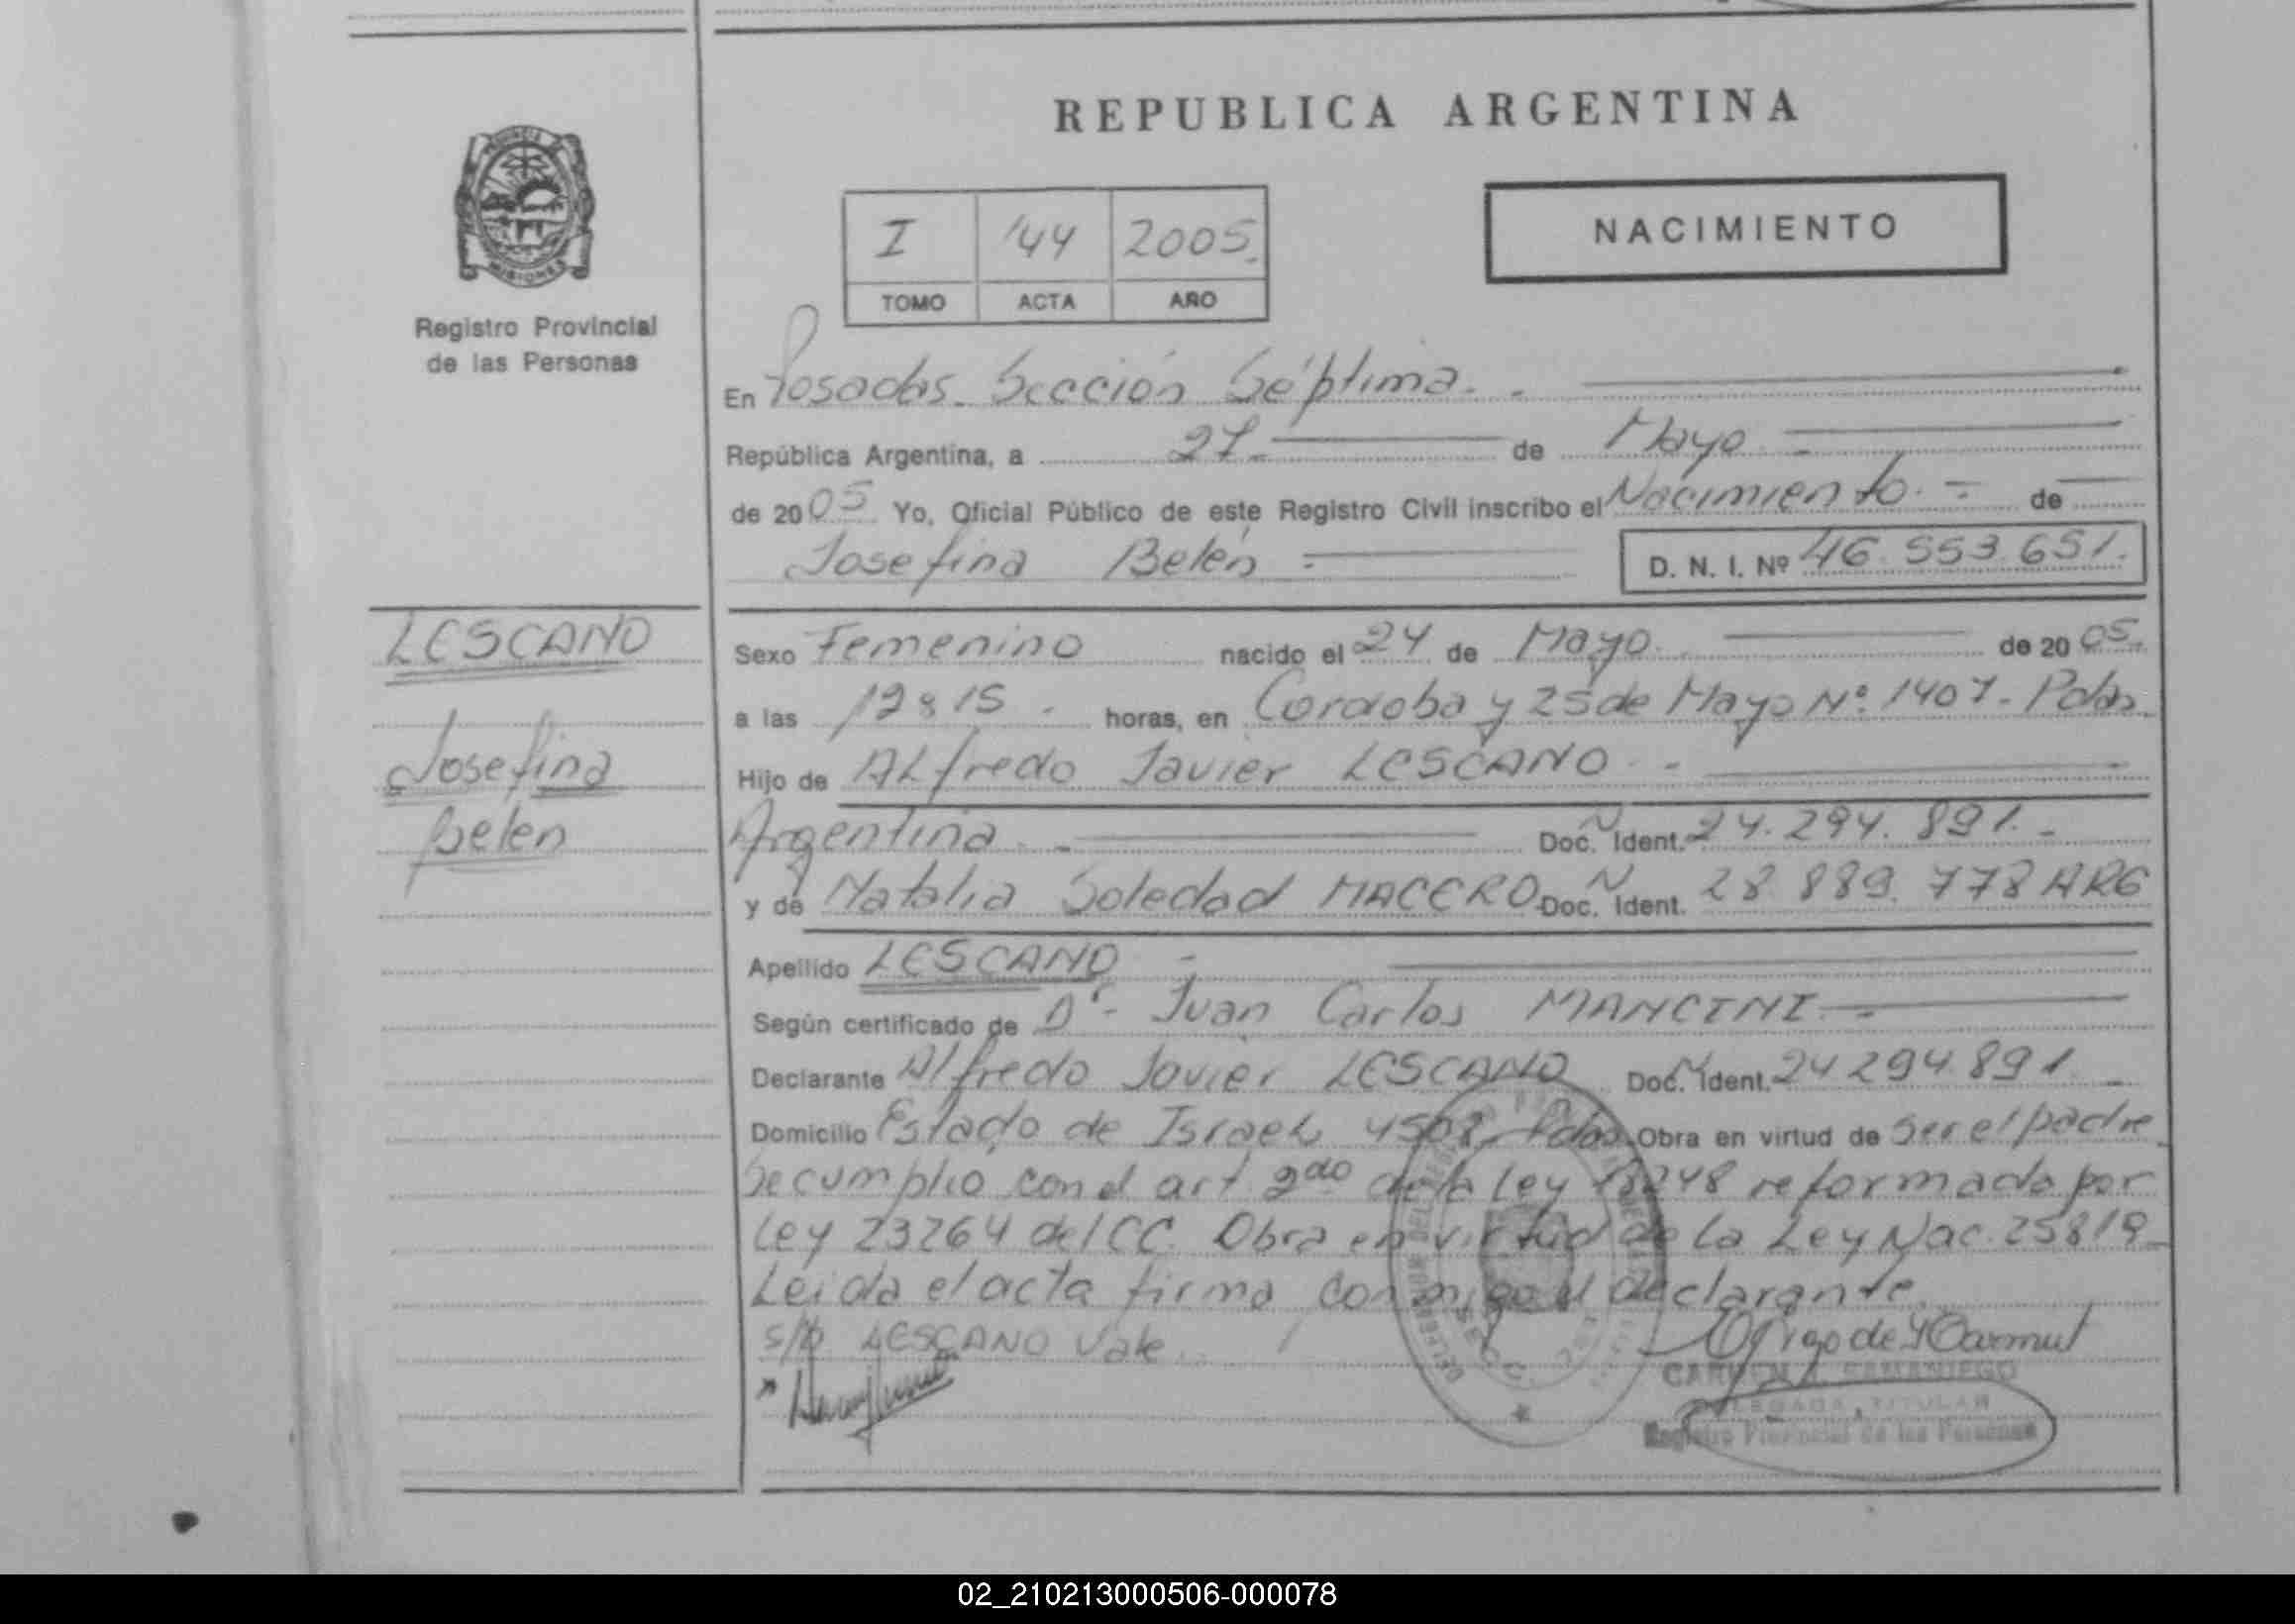 REPUBLICA ARGENTINA
PROVINCIA DE
MISIONES
Registro Provincial
de las Personas
I 144 2005.
TOMO ACTA AÑO
NACIMIENTO
En Posadas. Sección Séptima. -
República Argentina, a 27 - de Mayo -
de 2005 Yo, Oficial Público de este Registro Civil inscribo el Nacimiento. - de
Josefina Belén - D. N. I. Nº 46.553.651.
LESCANO
Josefina
Belen
Sexo Femenino nacido el 24 de Mayo. de 2005.
a las 12:15. horas, en Cordoba y 25 de Mayo Nº. 1407. Pdas.
Hijo de ALfredo Javier LESCANO. -
Argentina. - Doc. Ident. 24.294.891. -
y de Natalia Soledad MACERO Doc. Ident. 28.889.778 ARG
Apellido LESCANO -
Según certificado de Dr. Juan Carlos MANCINI -
Declarante Alfredo Javier LESCANO Doc. Ident. 24294891 -
Domicilio Estado de Israel Pdas. Obra en virtud de ser el padre
Se cumplio con el art. 2do de la Ley 18248 reformada por
Ley 23264 del CC. Obra en virtud de la Ley Nac. 25819
Leida el acta firma conmigo el declarante.
s/b LESCANO Vale.
CARMEN A. SAMANIEGO
DELEGADA TITULAR
Registro Provincial de las Personas
02_210213000506-000078